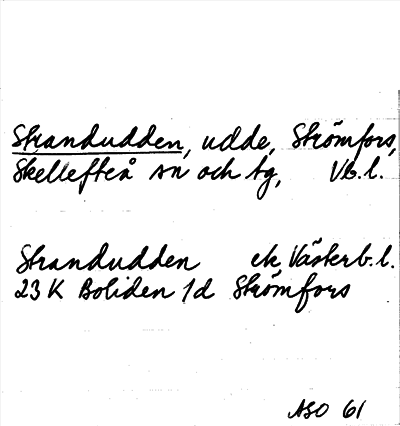 Strandudden, udde, Strömfors,
Skellefteå sn och tg, Vb.l.
Strandudden ek Västerb.l.
23 K Boliden 1d Strömfors
ASO 61